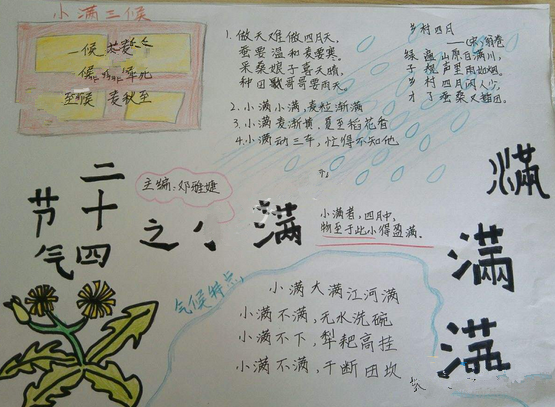 小满三候
一候苦麦
至候 麦秋至
1. 做天难做四月天,
蚕要温和麦要寒。
采桑娘子喜天晴,
种田戳哥哥要雨天。
2. 小满小满,麦粒渐满
3. 小满麦渐黄,夏至稻花香
4. 小满动三车,忙得不知他
乡村四月
——(宋)翁卷
绿遍山原白满川,
子规声里雨如烟。
乡村四月闲人少,
才了蚕桑又插田。
二十四
节气
之小满
主编:邓雅婕
小满者,四月中,
物至于此小得盈满。
满
满
满
气候特点
小满大满江河满
小满不满,无水洗碗
小满不下,犁耙高挂
小满不满,干断田坎